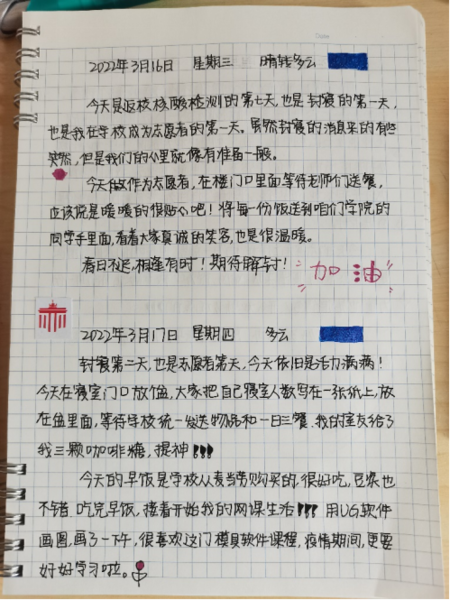 2022年3月16日 星期三 晴转多云
今天是返校核酸检测的第七天,也是封寝的第一天,
也是我在学校成为志愿者的第一天。虽然封寝的消息来的有些
突然,但是我们的心里就像有准备一般。
今天做作为志愿者,在楼门口里面等待老师们送餐,
应该说是暖暖的很贴心吧!将每一份饭送到咱们学院的
同学手里面,看着大家真诚的笑容,也是很温暖。
春日不迟,相逢有时!期待解封!
加油
2022年3月17日 星期四 多云
封寝第二天,也是志愿者第天,今天依旧是活力满满!
今天在寝室门口放个盒,大家把自己寝室人数写在一张纸上,放
在盒里面,等待学校统一发送物品和一日三餐.我的室友给了
我三颗咖啡糖,提神!!!
今天的早饭是学校从麦当劳购买的,很好吃,豆浆也
不错.吃完早饭,接着开始我的网课生活!!!用UG软件
画图,画了一下午,很喜欢这门模具软件课程,疫情期间,更要
好好学习啦。